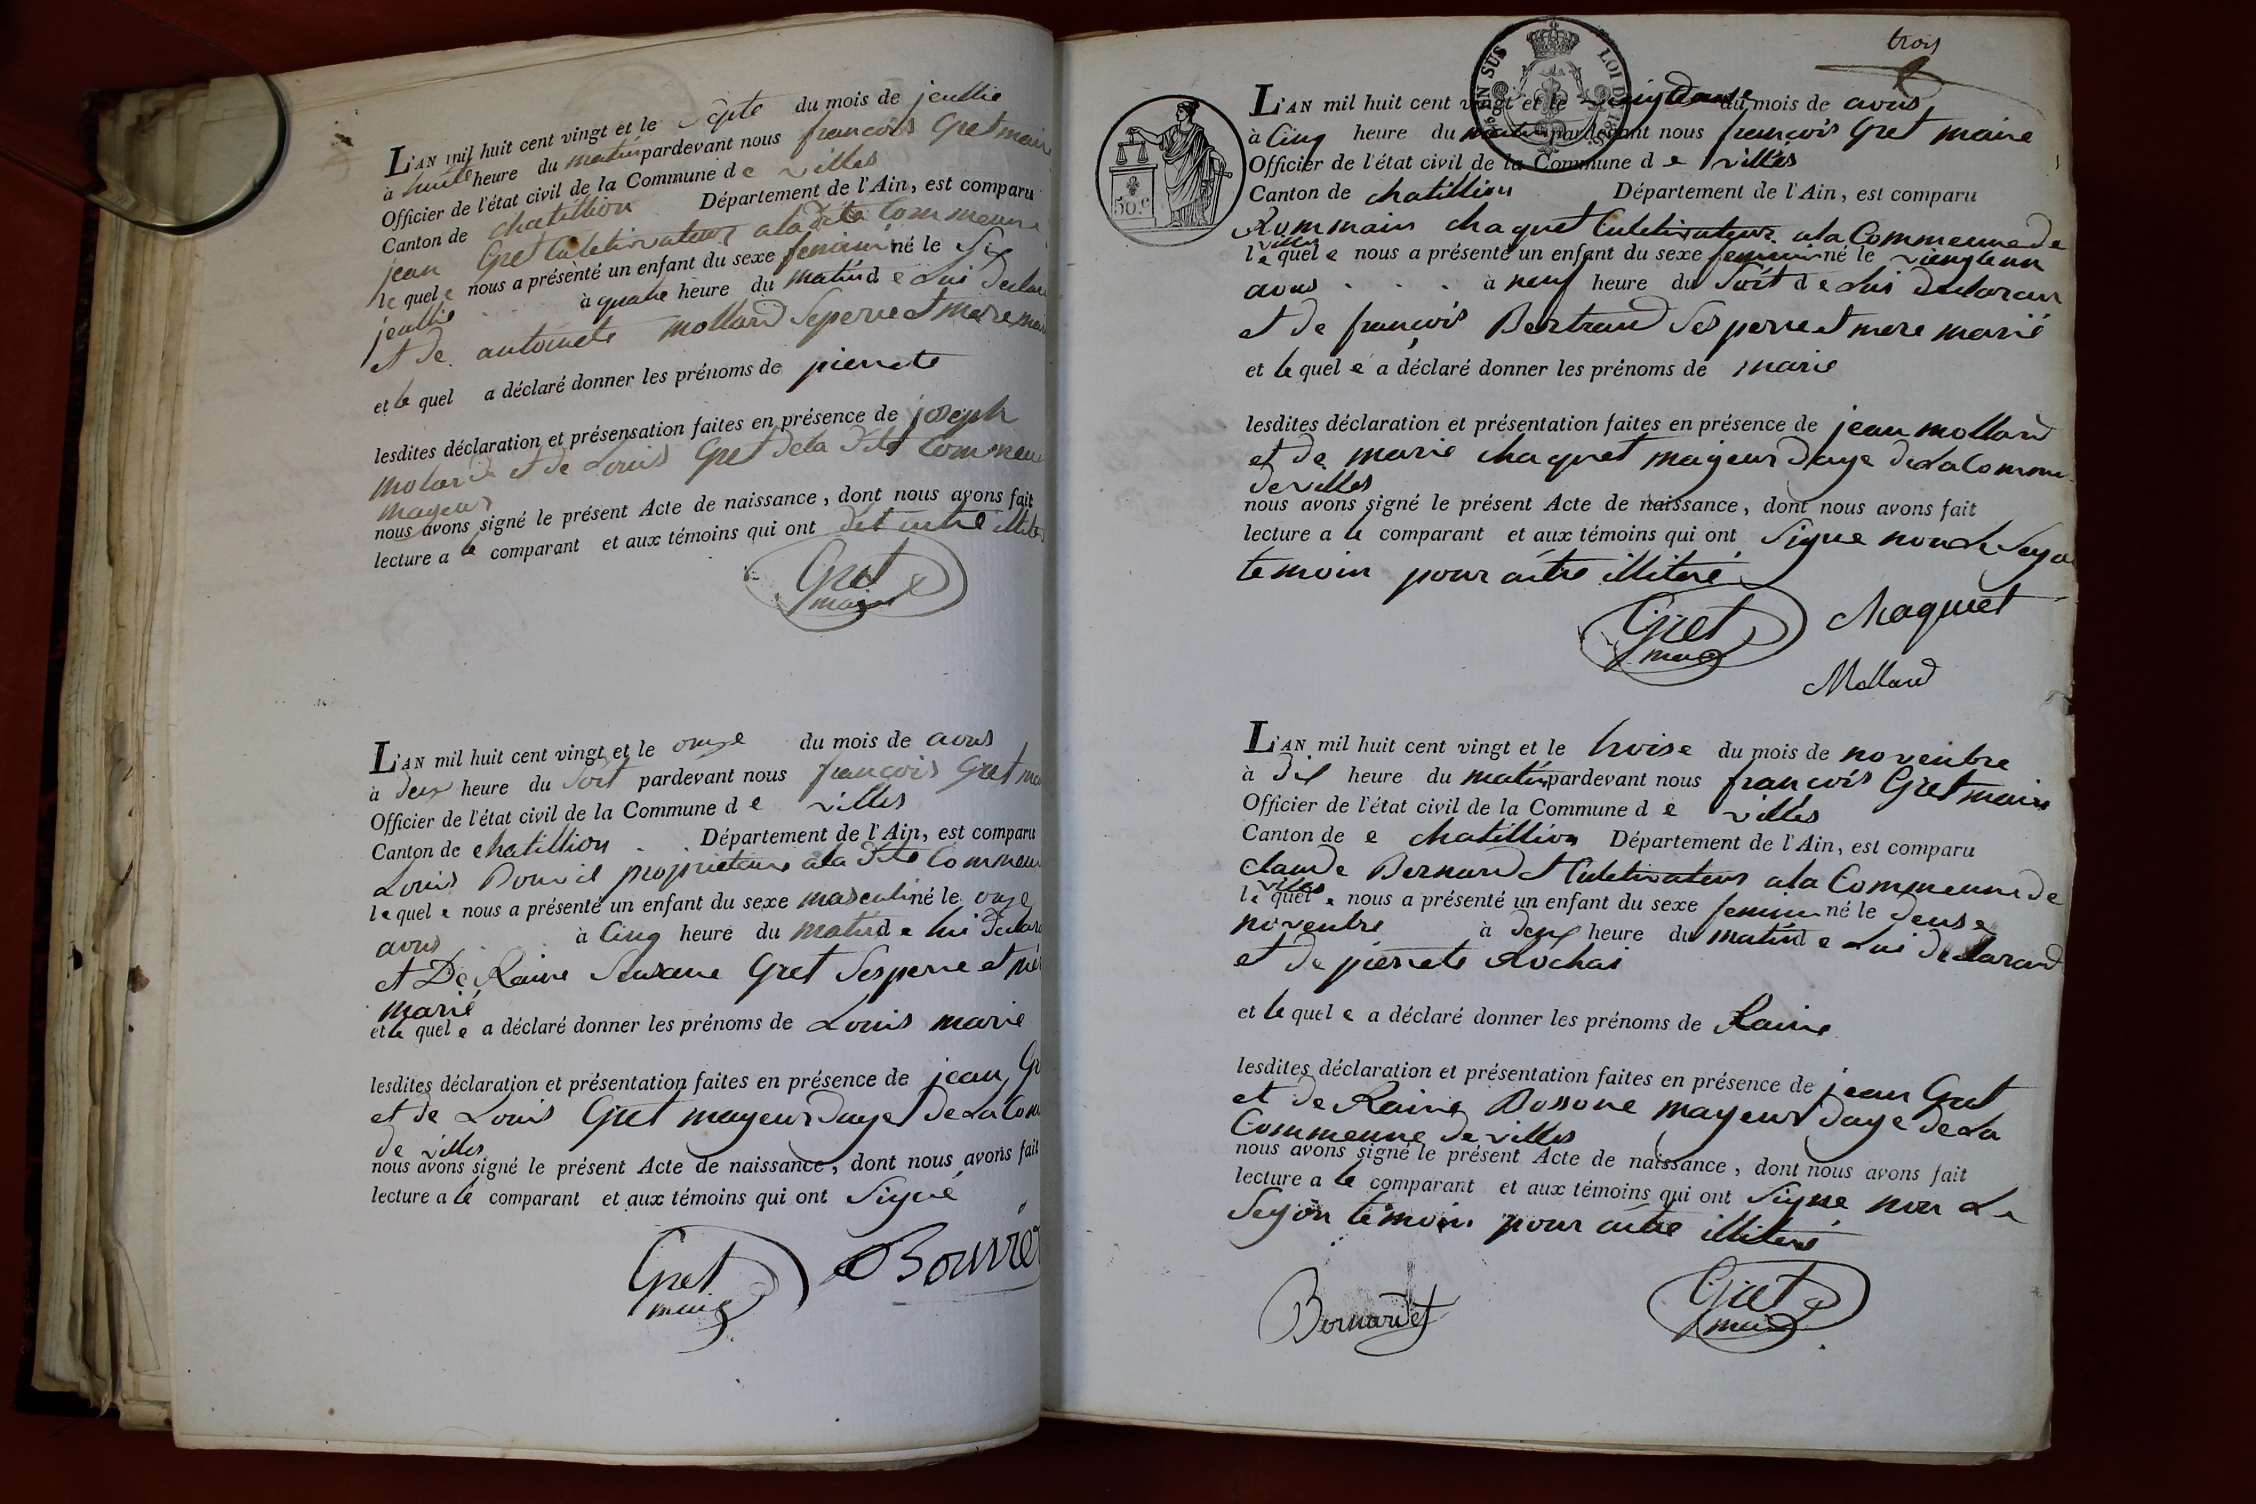 L'AN mil huit cent vingt et le septe du mois de jeullie
à huite heure du matin pardevant nous françois Gret maire
Officier de l'état civil de la Commune d e villes
Canton de chatillion Département de l'Ain, est comparu
jean Gret Culetivateur a la dite Commeune
le quel e nous a présenté un enfant du sexe feminin né le Six
jeullie à quatre heure du matin d e Lui Declar
et de antoinete mollard Seperre et mere
et le quel a déclaré donner les prénoms de pierrete
lesdites déclaration et présensation faites en présence de joseph
molard et de Louis Gret dela dite Commeun
mayeur
nous avons signé le présent Acte de naissance, dont nous avons fait
lecture a le comparant et aux témoins qui ont dit
Gret
maire
L'AN mil huit cent vingt et le onze du mois de avus
à deux heure du Soit pardevant nous françois Gret
Officier de l'état civil de la Commune d e villes
Canton de chatillion Département de l'Ain, est comparu
Louis propriétaire a la dite Commeun
le quel e nous a présenté un enfant du sexe masculin né le onze
avus à Cinq heure du matin d e lui Declar
et De Raine Susane Gret Sesperre et
marié
et le quel e a déclaré donner les prénoms de Louis marie
lesdites déclaration et présentation faites en présence de jean
et de Louis Gret mayeur dage de La Com
de villes
nous avons signé le présent Acte de naissance, dont nous avons fait
lecture a le comparant et aux témoins qui ont Signé
Gret
maire
Bouvier
trois
EN SUS LOI DE 1816
50.c
L'AN mil huit cent vingt et le vingt deuse du mois de avus
à Cinq heure du matin pardevant nous françois Gret maire
Officier de l'état civil de la Commune d e villes
Canton de chatillion Département de l'Ain, est comparu
Rommain chaquet Culetivateur a la Commeune de
villes
le quel e nous a présenté un enfant du sexe feminin né le
avus à neuf heure du Soit d e Lui declaran
et de françois Bertrand Ses perre et mere marié
et le quel e a déclaré donner les prénoms de marie
lesdites déclaration et présentation faites en présence de jean mollard
et de marie chaquet mayeur dage de La Commeu
de villes
nous avons signé le présent Acte de naissance, dont nous avons fait
lecture a le comparant et aux témoins qui ont Signe non Le
temoin pour aitre illiteré
Gret
maire
Chaquet
Mollard
L'AN mil huit cent vingt et le troise du mois de noventre
à dix heure du matin pardevant nous françois Gret maire
Officier de l'état civil de la Commune d e villes
Canton de e chatillion Département de l'Ain, est comparu
claude Bernardet Culetivateur a la Commeune de
villes
le quel e nous a présenté un enfant du sexe feminin né le deuse
noventre à deux heure du matin d e Lui declarand
et de pierrete Rochai
et le quel e a déclaré donner les prénoms de Raine
lesdites déclaration et présentation faites en présence de jean Gret
et de Raine Bossone mayeur dage de La
Commeune de villes
nous avons signé le présent Acte de naissance, dont nous avons fait
lecture a le comparant et aux témoins qui ont Signe non Le
Segon témoin pour aitre illiteré
Bernardet
Gret
maire